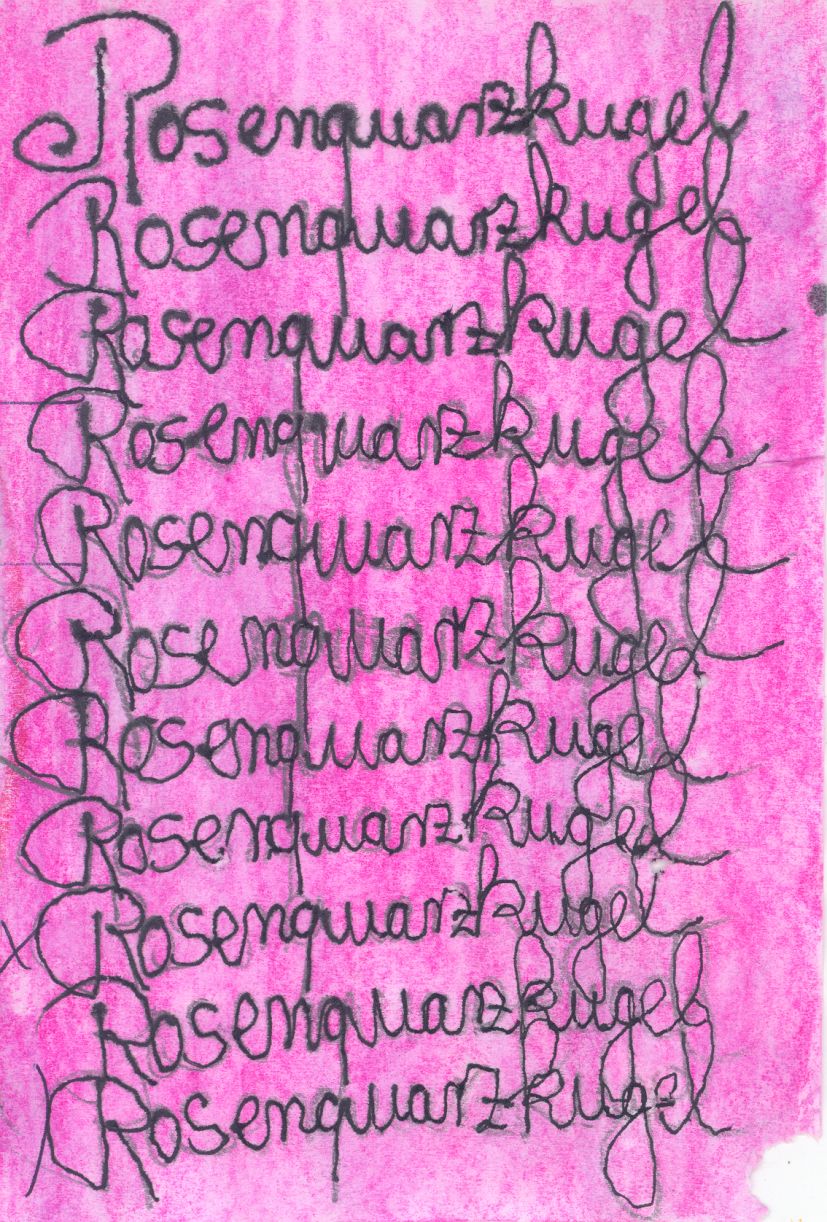 Rosenquarzkugel
Rosenquarzkugel
Rosenquarzkugel
Rosenquarzkugel
Rosenquarzkugel
Rosenquarzkugel
Rosenquarzkugel
Rosenquarzkugel
Rosenquarzkugel
Rosenquarzkugel
Rosenquarzkugel